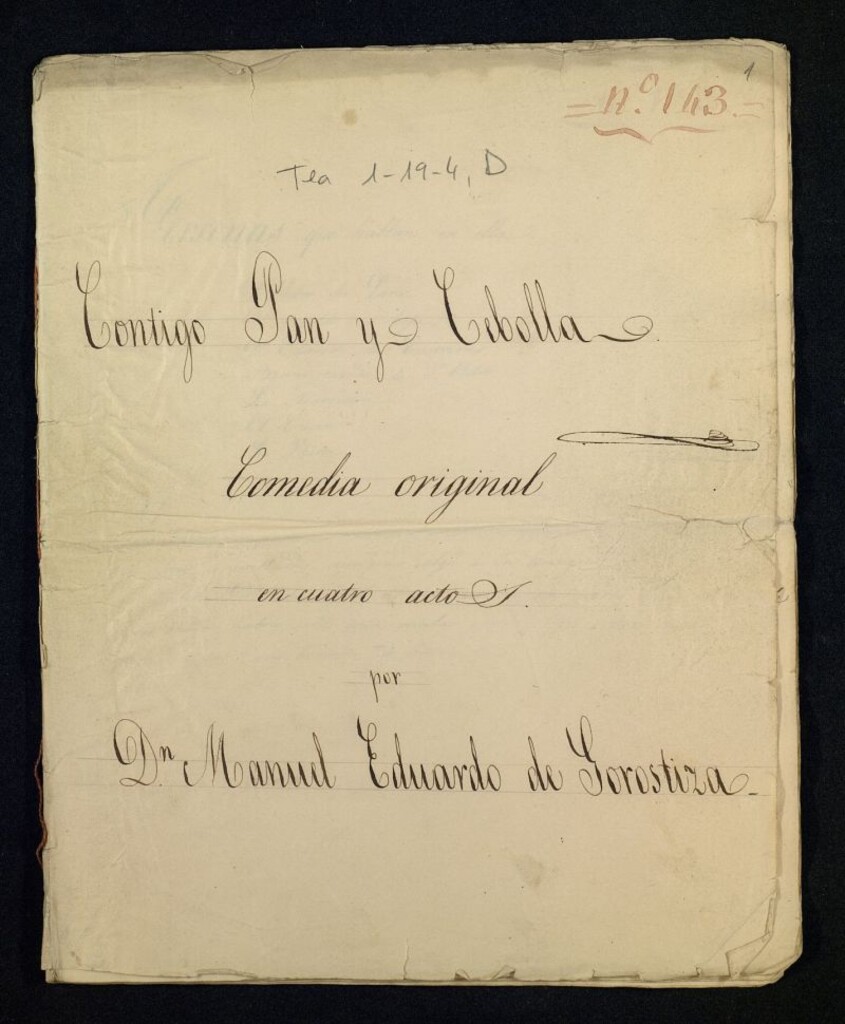 1
= n.º 143. =
Tea 1-19-4, D
Contigo Pan y Cebolla.
Comedia original
en cuatro actos.
por
Dn. Manuel Eduardo de Gorostiza.